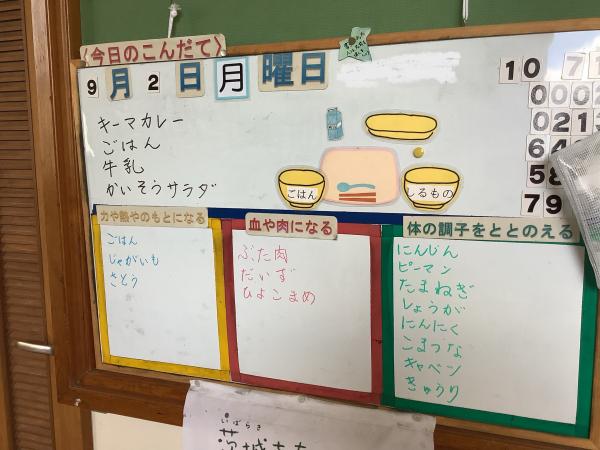 〈今日のこんだて〉
9月2日月曜日
キーマカレー
ごはん
牛乳
かいそうサラダ
ごはん
しるもの
10
7
000
021
64
58
79
力や熱やのもとになる
ごはん
じゃがいも
さとう
血や肉になる
ぶた肉
だいず
ひよこまめ
体の調子をととのえる
にんじん
ピーマン
たまねぎ
しょうが
にんにく
こまつな
キャベツ
きゅうり
いばらき
茨城